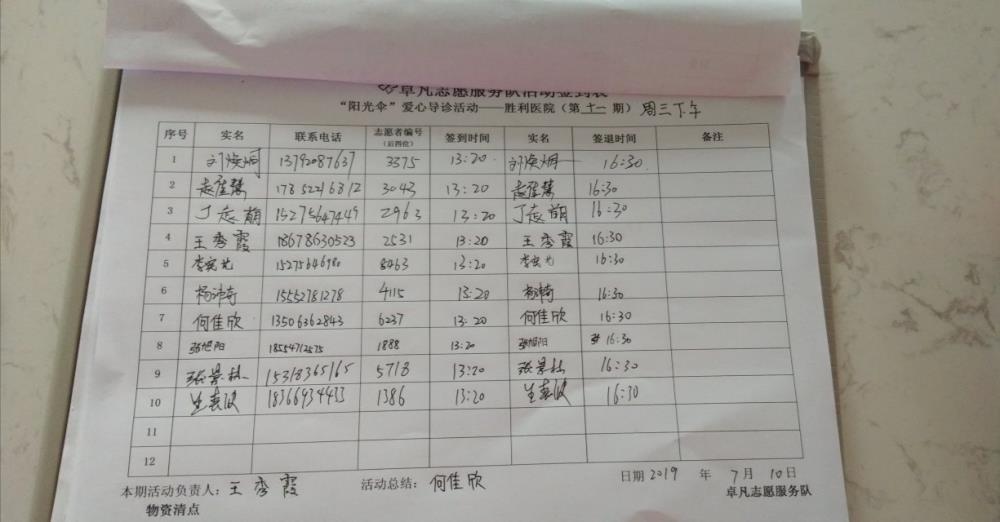 卓凡志愿服务队活动签到表
“阳光伞”爱心导诊活动——胜利医院（第十一期）周三下午
序号 实名 联系电话 志愿者编号（后四位） 签到时间 实名 签退时间 备注
1 13792087637 3375 13:20 16:30
2 17852216812 3043 13:20 16:30
3 丁志萌 15275647449 2963 13:20 丁志萌 16:30
4 王秀霞 18678630523 2531 13:20 王秀霞 16:30
5 15275646980 8463 13:20 16:30
6 15552781278 4115 13:20 16:30
7 何佳欣 13506362843 6237 13:20 何佳欣 16:30
8 张旭阳 18554712575 1888 13:20 张旭阳 16:30
9 张景 15318365165 5718 13:20 张景 16:30
10 18366934433 1386 13:20 16:30
11
12
本期活动负责人：王秀霞 活动总结：何佳欣 日期 2019 年 7 月 10 日
物资清点 卓凡志愿服务队